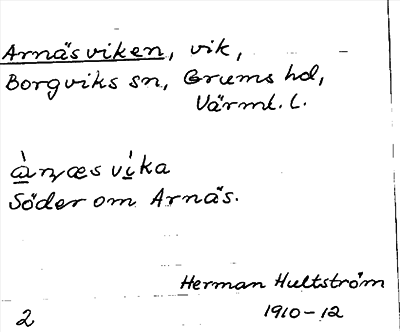 Arnäsviken, vik,
Borgviks sn, Grums hd,
Värml. l.
à̱ɳæs vì̱ka
Söder om Arnäs.
Herman Hultström
2 1910-12